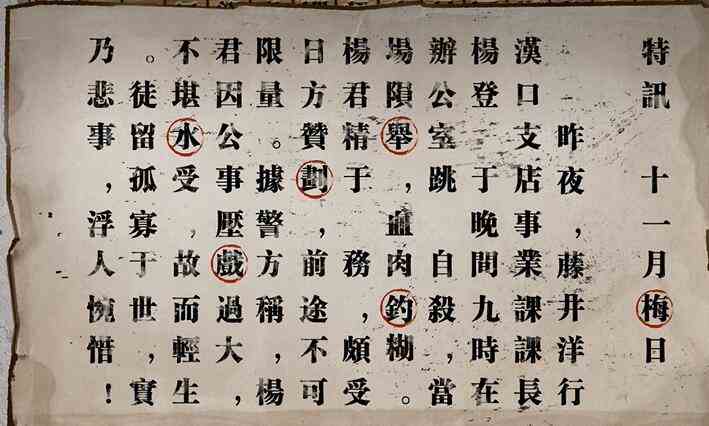 特訊 十一月梅日
昨夜，藤井洋行
漢口支店事業課課長
楊登 于晚間九時在
辦公室跳 自殺，當
場隕舉，血肉釣糊。
楊君精于 務，頗受
日方贊劃，前途不可
限量。據警方稱，楊
君因公事壓戲過大，
不堪水受 故而輕生
。徒留孤寡于世，實
乃悲事，浮人惋惜！